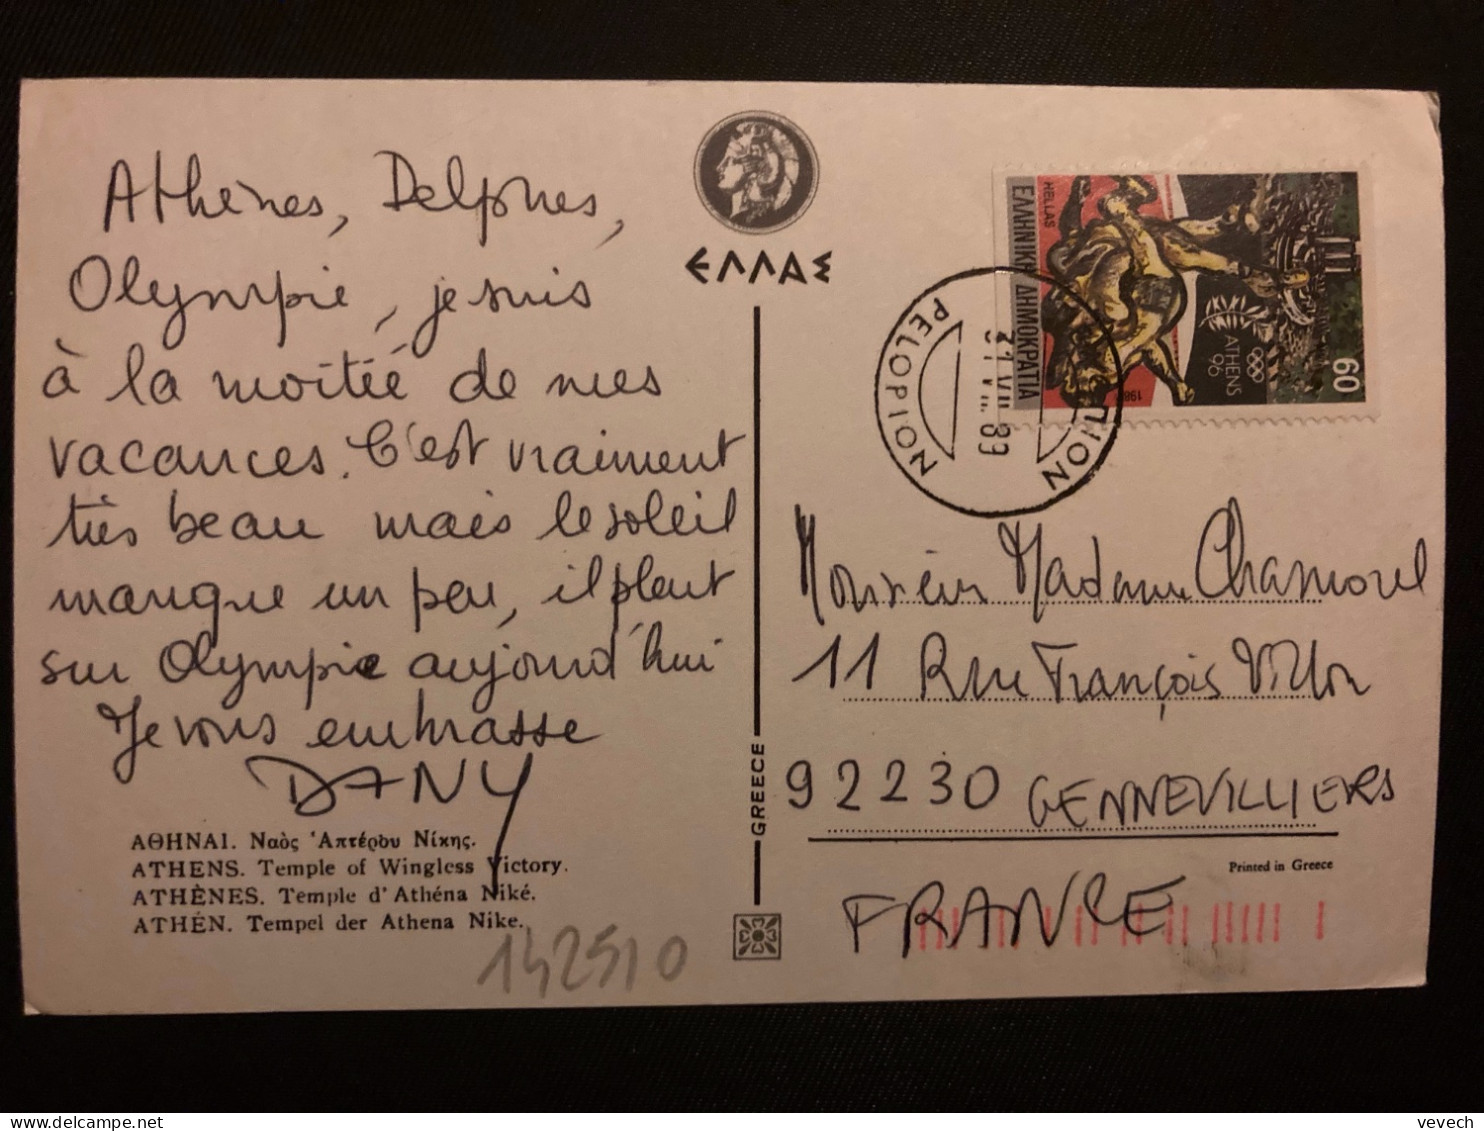 Athènes, Delphes,
Olympie, je suis
à la moitié de mes
vacances. C'est vraiment
très beau mais le soleil
manque un peu, il pleut
sur Olympie aujourd'hui
Je vous embrasse
DANY
ΑΘΗΝΑΙ. Ναὸς Ἀπτέρου Νίκης.
ATHENS. Temple of Wingless Victory.
ATHÈNES. Temple d'Athéna Niké.
ATHÉN. Tempel der Athena Nike.
142510
ΕΛΛΑΣ
GREECE
HELLAS
ΕΛΛΗΝΙΚΗ ΔΗΜΟΚΡΑΤΙΑ
ATHENS
96
60
PELOPION
31 VII. 89
Monsieur Madame Chamorel
11 Rue François Villon
92230 GENNEVILLIERS
Printed in Greece
FRANCE
vevech